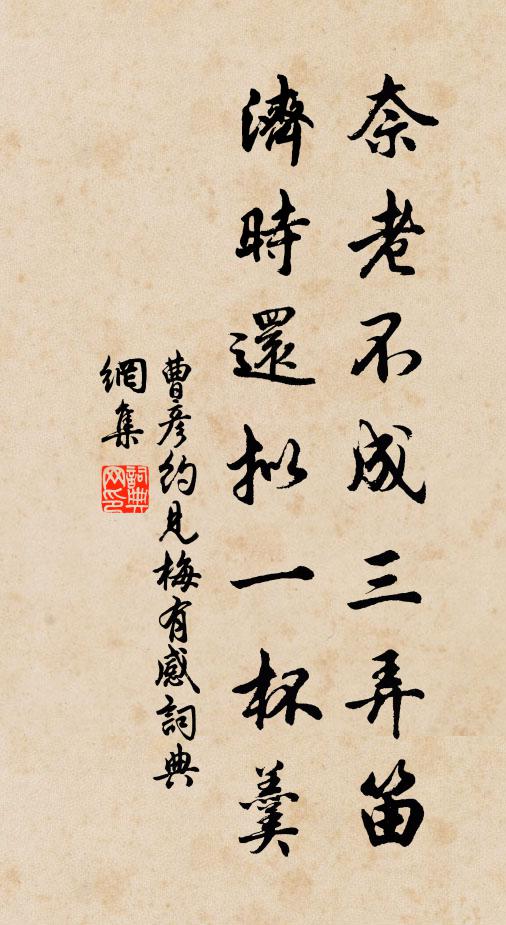 奈老不成三弄笛
濟時還拟一杯羹
曹彥約見梅有感詞典
網集
詞典
网印